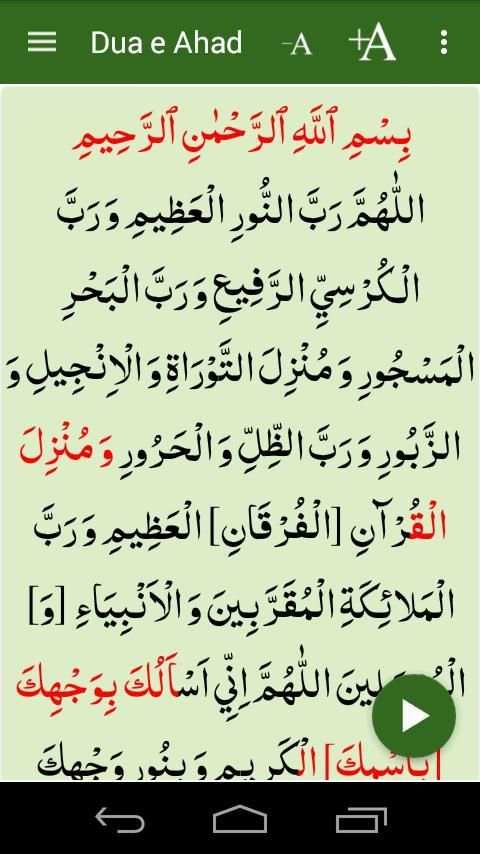 Dua e Ahad −A +A
بِسْمِ ٱللَّهِ ٱلرَّحْمٰنِ ٱلرَّحِيمِ
اللّٰهُمَّ رَبَّ النُّورِ الْعَظِيمِ وَ رَبَّ
الْكُرْسِيِّ الرَّفِيعِ وَ رَبَّ الْبَحْرِ
الْمَسْجُورِ وَ مُنْزِلَ التَّوْرَاةِ وَ الْاِنْجِيلِ وَ
الزَّبُورِ وَ رَبَّ الظِّلِّ وَ الْحَرُورِ وَ مُنْزِلَ
الْقُرْآنِ [الْفُرْقَانِ] الْعَظِيمِ وَ رَبَّ
الْمَلائِكَةِ الْمُقَرَّبِينَ وَ الْاَنْبِيَاءِ [وَ]
اللّٰهُمَّ اِنِّي اَسْاَلُكَ بِوَجْهِكَ
[بِاسْمِكَ] الْكَرِيمِ وَ بِنُورِ وَجْهِكَ